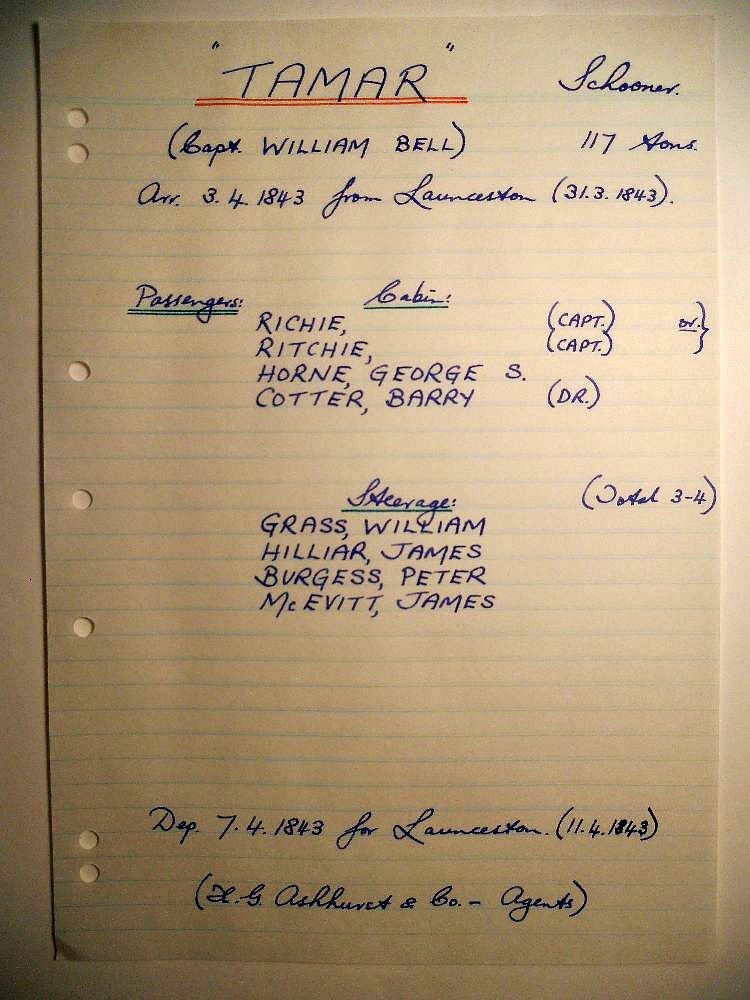 "TAMAR" Schooner.
(Capt. WILLIAM BELL) 117 tons.
Arr. 3.4.1843 from Launceston (31.3.1843).
Passengers: Cabin:
RICHIE, (CAPT.) or}
RITCHIE, (CAPT.)
HORNE, GEORGE S.
COTTER, BARRY (DR.)
Steerage: (Total 3-4)
GRASS, WILLIAM
HILLIAR, JAMES
BURGESS, PETER
McEVITT, JAMES
Dep. 7.4.1843 for Launceston. (11.4.1843)
(H.G. Ashhurst & Co. - Agents)